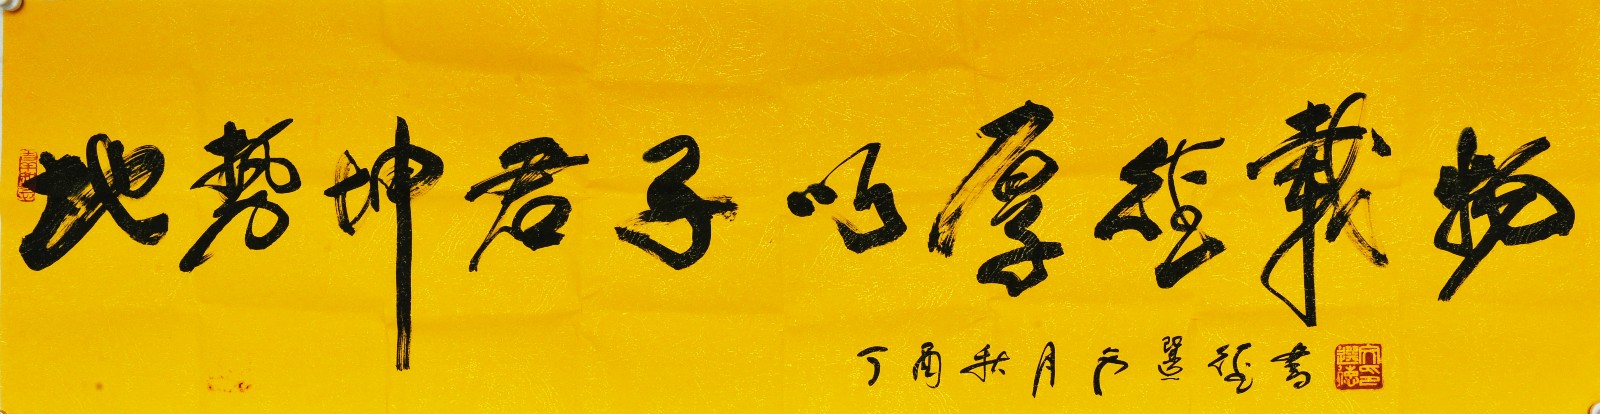 地勢坤君子以厚德載物
丁酉秋月選德書